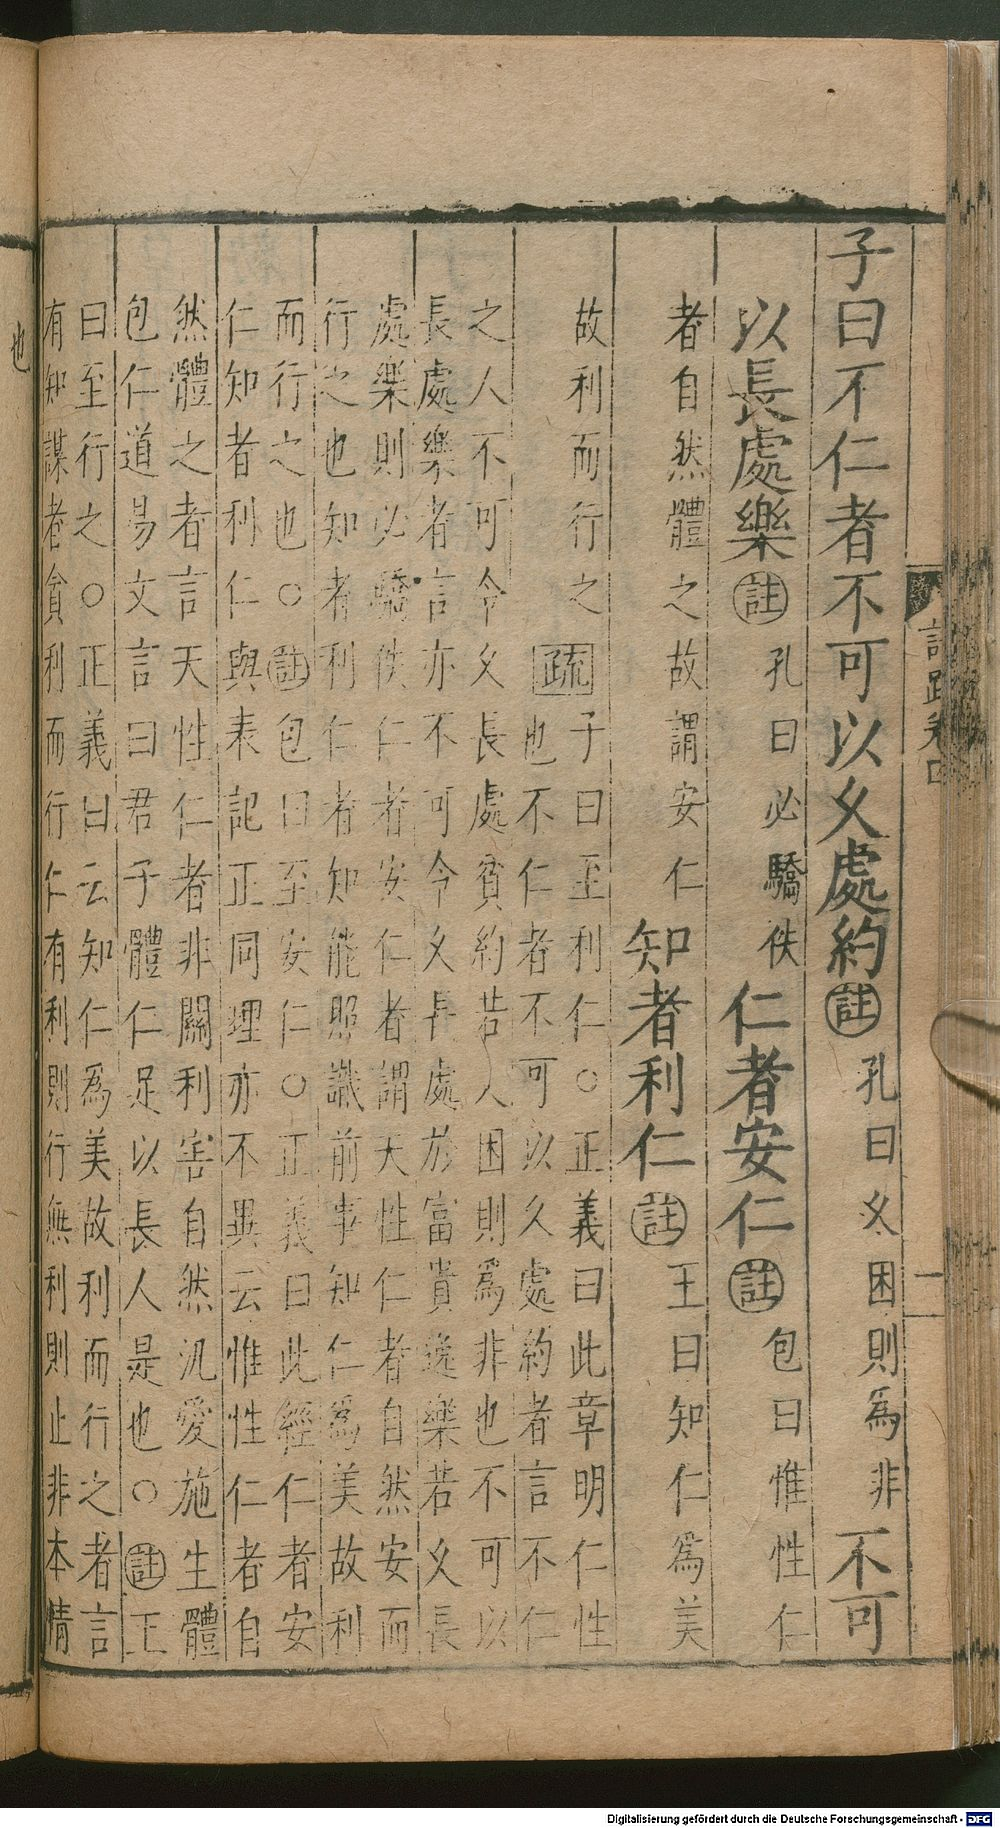 子曰不仁者不可以久處約註孔曰久困則爲非不可
以長處樂註孔曰必驕佚仁者安仁註包曰惟性仁
者自然體之故謂安仁知者利仁註王曰知仁爲美
故利而行之疏子曰至利仁○正義曰此章明仁性
也不仁者不可以久處約者言不仁
之人不可令久長處貧約若久困則爲非也不可以
長處樂者言亦不可令久長處於富貴逸樂若久長
處樂則必驕佚仁者安仁者謂天性仁者自然安而
行之也知者利仁者知能照識前事知仁爲美故利
而行之也○註包曰至安仁○正義曰此經仁者安
仁知者利仁與表記正同理亦不異云惟性仁者自
然體之者言天性仁者非關利害自然汎愛施生體
包仁道易文言曰君子體仁足以長人是也○註王
曰至行之○正義曰云知仁爲美故利而行之者言
有知謀者貪利而行仁有利則行無利則止非本情
註疏卷四
二
也
Digitalisierung gefördert durch die Deutsche Forschungsgemeinschaft - DFG